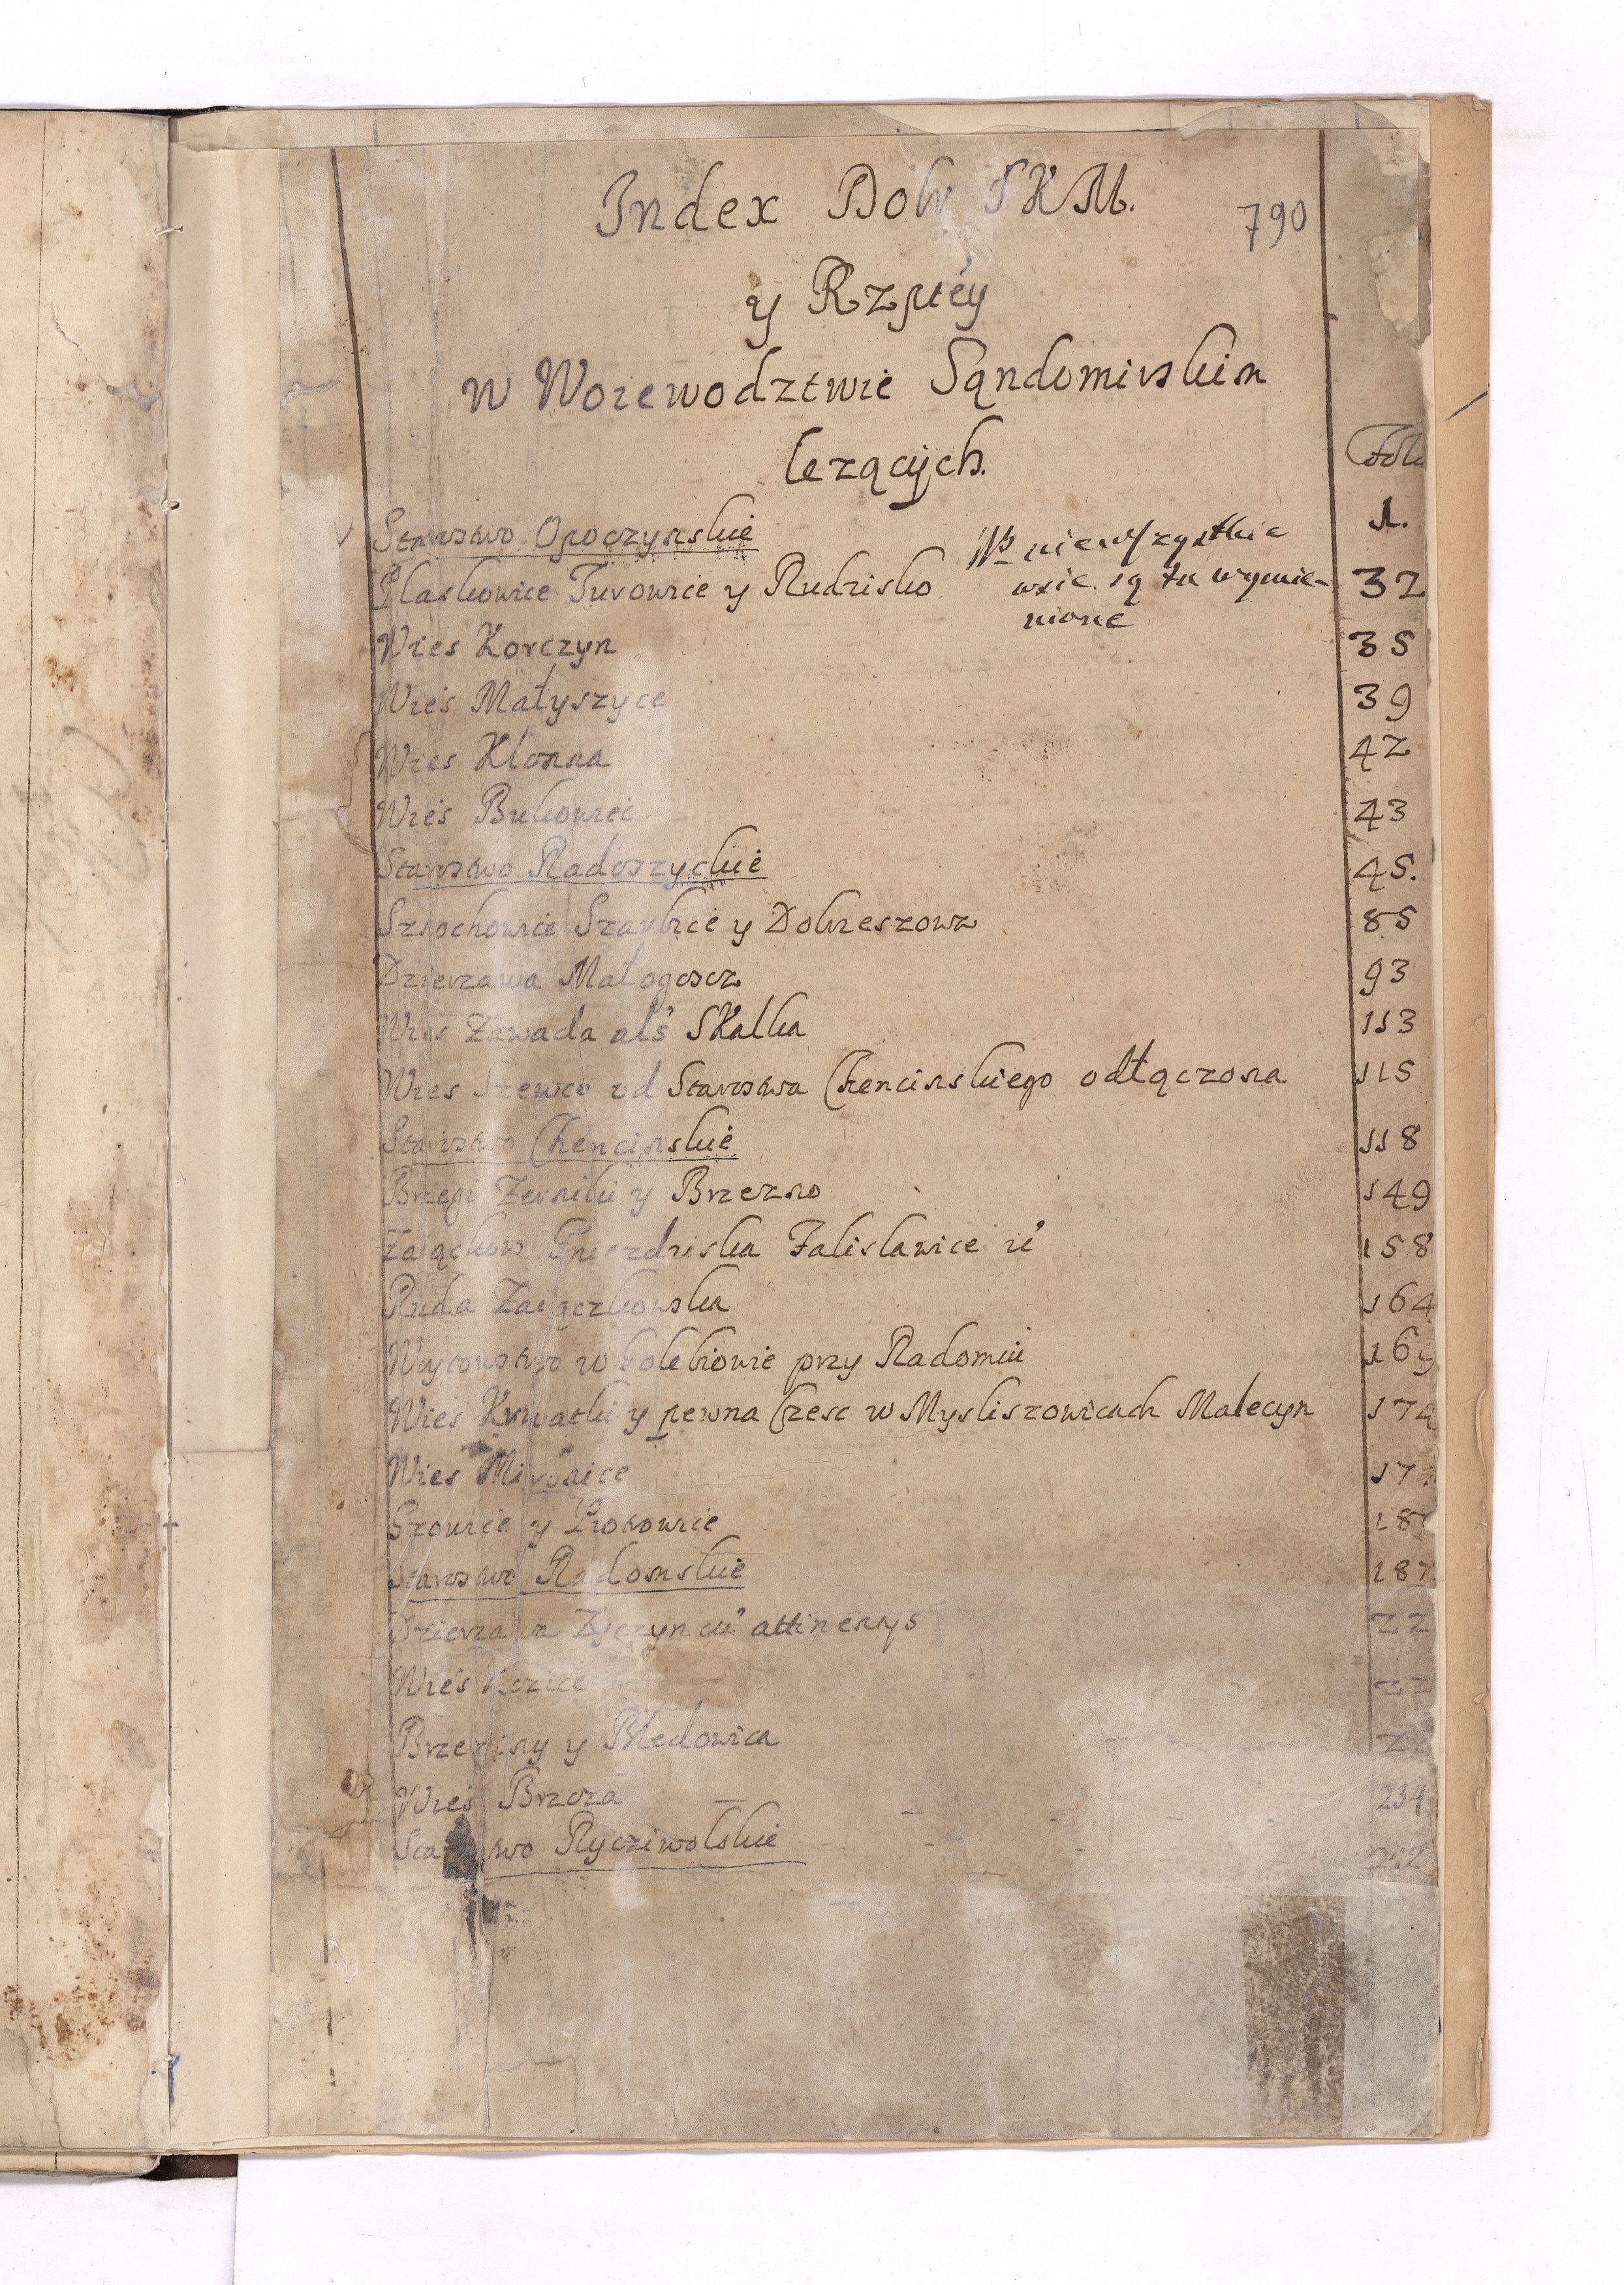 Index Dobr J K M.
790
y Rzptey
w Woiewodztwie Sąndomirskim
lezących.
Folio
Starostwo Opoczynskie 1.
Nb niewszystkie
wsie są tu wymie-
nione
Plaskowice Turowice y Rudzisko 32
Wies Korczyn 35
Wies Małyszyce 39
Wies Klonna 42
Wies Bukowiec 43
Starostwo Radoszyckie 45.
Szarbice y Dobrzeszow 85
Dzierzawa Małogoscz 93
Wies Zawada als Skalka 113
Wies Szewce od Starostwa Chencinskiego odłączona 115
Starostwo Chencinskie 118
Brzegi Zerniki y Brzezno 149
Zaiączkow Gniezdziska Falislawice y 158
Ruda Zaiączkowska 164
Woytowstwo w Golebiowie przy Radomiu 169
Wies y pewna Czesc w Mysliszowicach Malecyn 174
Wies 17
y Piotrowice 18
Starostwo Radomskie 187
Dzierzawa Zyczyn cu attinenys 22
Wies
Brzeziny y Bledowica
Wies Brzoza 234
Starostwo Rycziwolskie